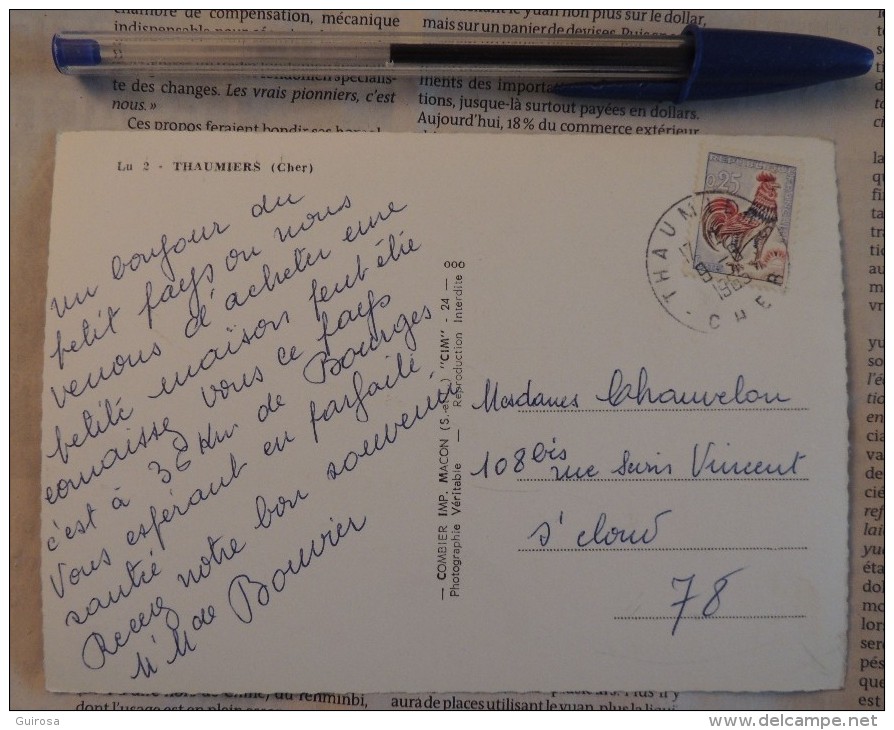 chambre de compensation, mécanique
nous. »
te des changes. Les vrais pionniers, c'est
Ces propos feraient bondir ses
mais sur un panier de devises.
ments des
tions, jusque-là surtout payées en dollars.
Aujourd'hui, 18 % du commerce extérieur
Lu 2 - THAUMIERS (Cher)
un bonjour du
petit pays ou nous
venons d'acheter une
petite maison peut être
connaissez vous ce pays
c'est à 36 Km de Bourges
Vous espérant en parfaite
santé
Recevez notre bon souvenir
M Mde Bouvier
— COMBIER IMP. MACON (S.-et-L.) "CIM" - 24 — 000
Photographie Véritable — Reproduction Interdite
0,25
THAUMIERS
CHER
Mesdames Chauvelon
108 bis
rue Vincent
St cloud
78
dont l'usage est en
aura de places utilisant le yuan, plus la
Guirosa
www.delcampe.net